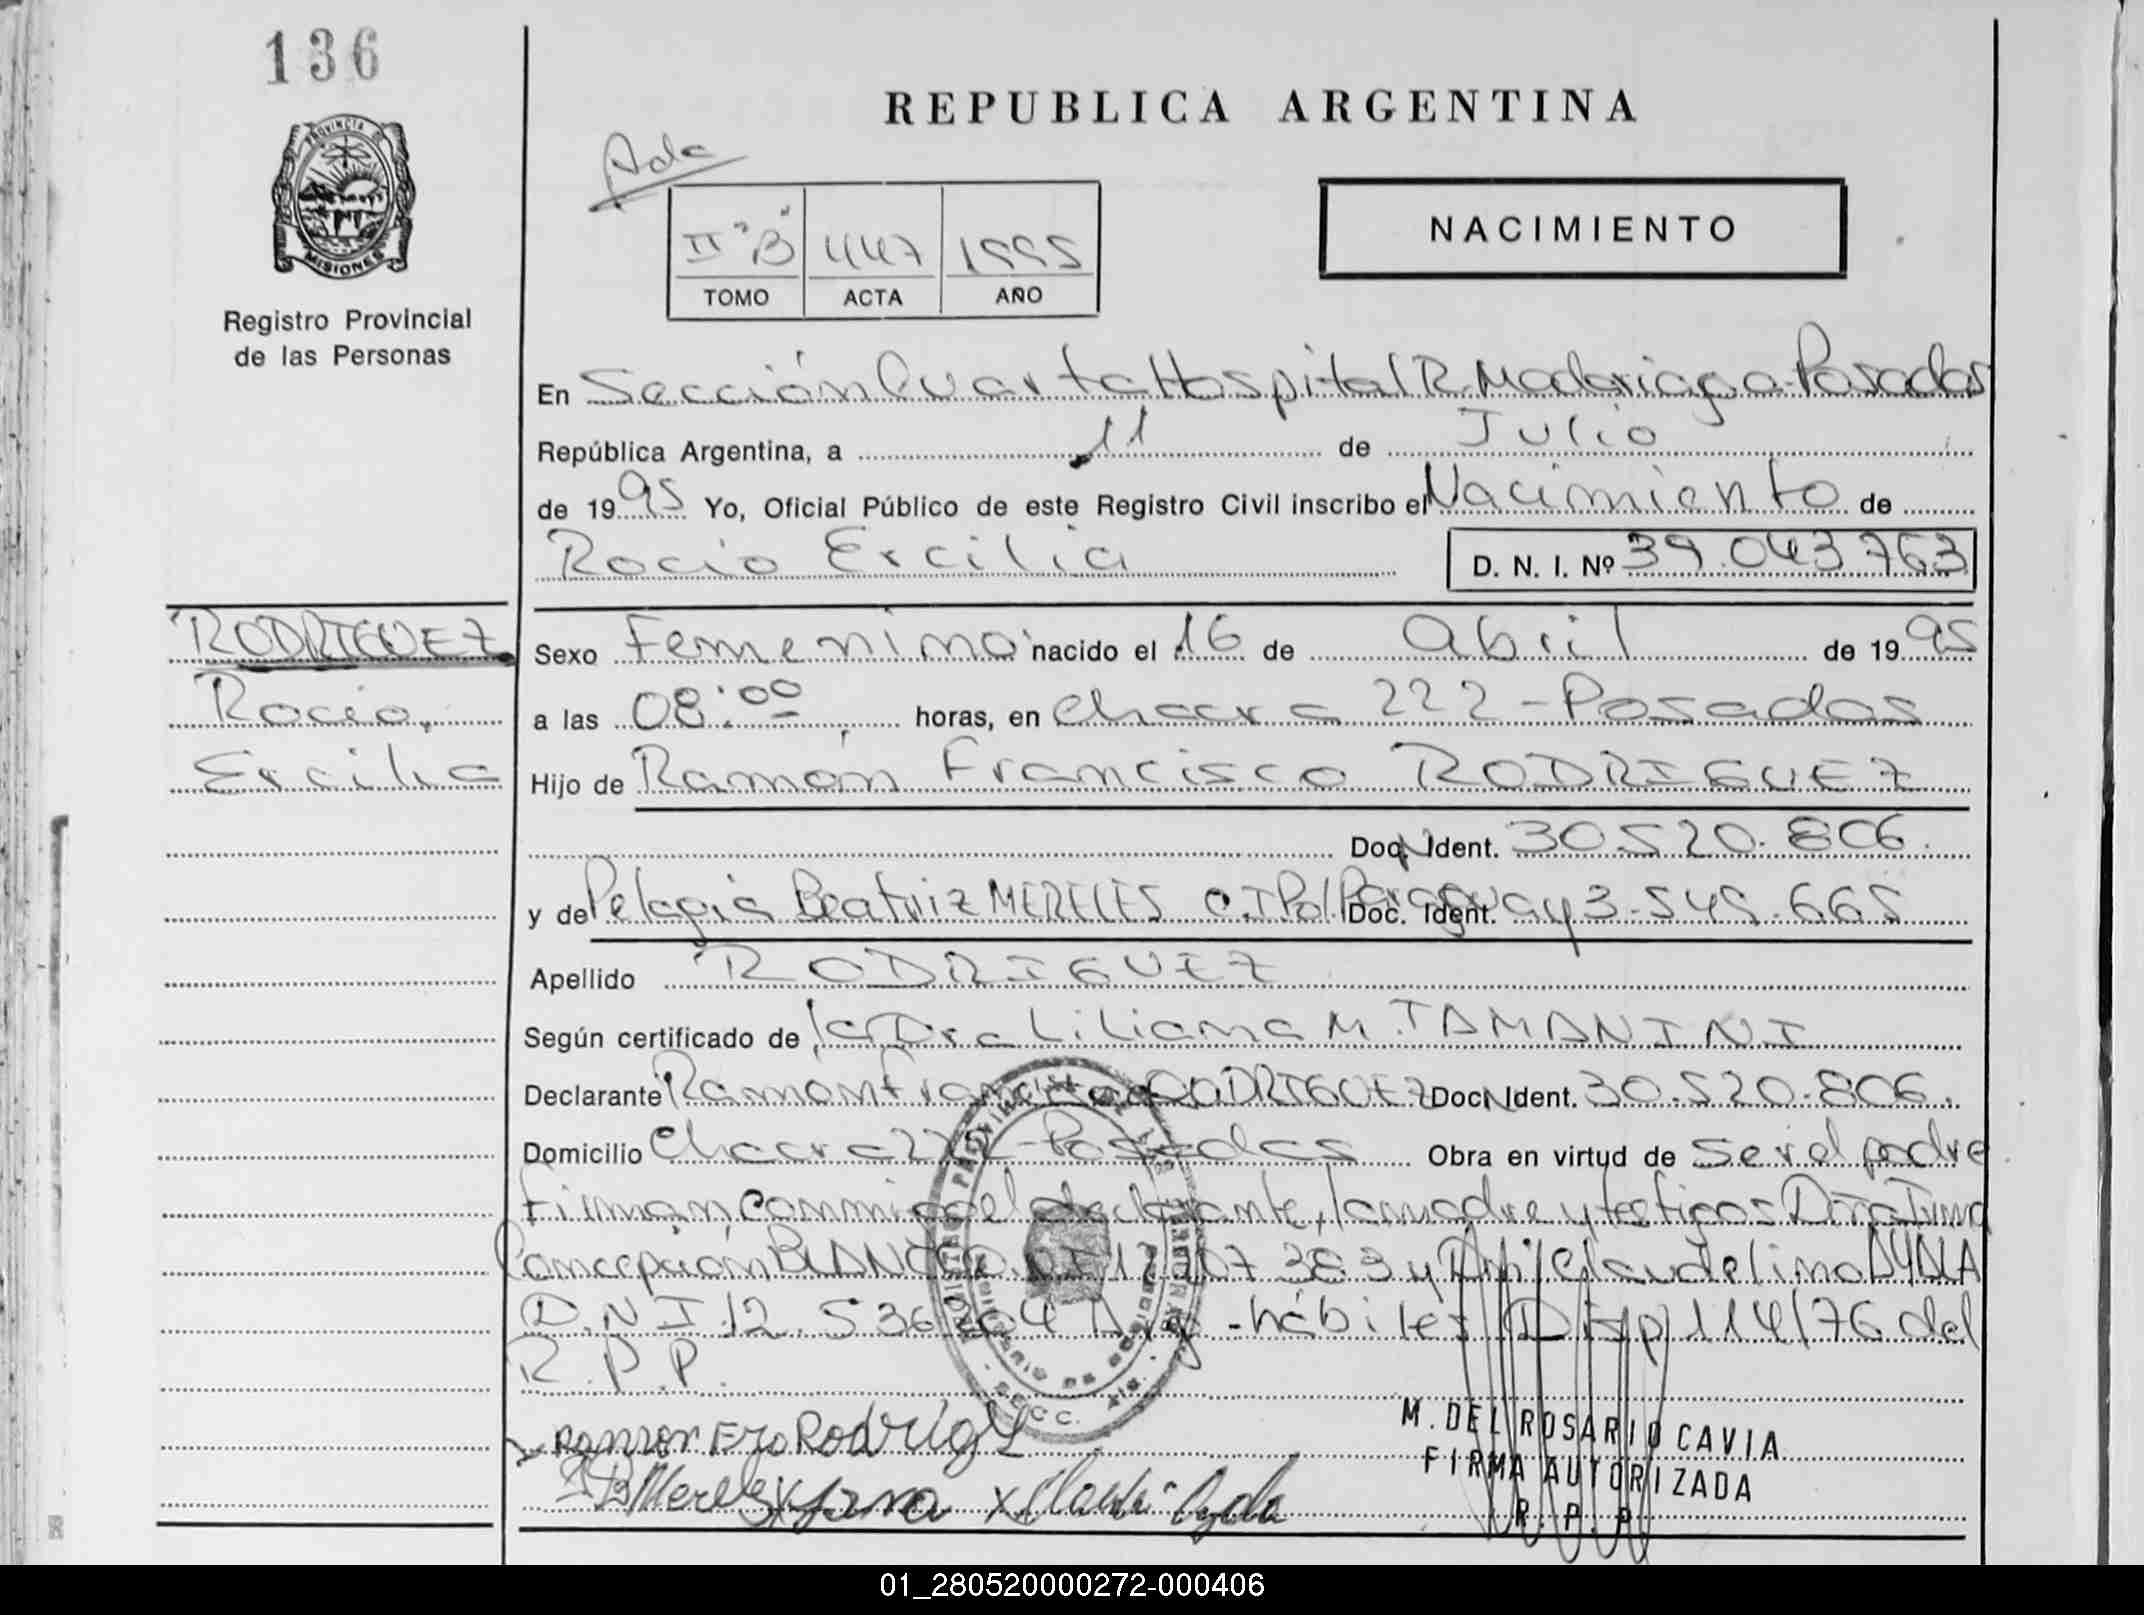 136
PROVINCIA DE
MISIONES
Registro Provincial
de las Personas
REPUBLICA ARGENTINA
Ada
II "B" 447 1995
TOMO ACTA AÑO
NACIMIENTO
En Sección Cuarta Hospital R. Madariaga - Posadas
República Argentina, a 11 de Julio
de 1995 Yo, Oficial Público de este Registro Civil inscribo el Nacimiento de
Rocio Ercilia D. N. I. Nº 39.043.763
RODRIGUEZ
Rocio,
Ercilia
Sexo Femenino nacido el 16 de Abril de 1995
a las 08:00 horas, en Chacra 222 - Posadas
Hijo de Ramón Francisco RODRIGUEZ
Doc. N Ident. 30.520.806.
y de Pelagia Beatriz MERELES C.I Pol Paraguay Doc. Ident. 3.549.665
Apellido RODRIGUEZ
Según certificado de la Dra Liliana M. TAMANINI
Declarante Ramon Francisco RODRIGUEZ Doc. N Ident. 30.520.806.
Domicilio Chacra 222 - Posadas Obra en virtud de ser el padre
Firman conmigo el declarante, la madre y testigos Doña
Concepción BLANCO 383 y Claudelino AYALA
D.N.I 12.536 - hábiles Disp 114/76 del
R.P.P.
Ramon Fco Rodrigz
B Mereles x x Claudi Ayala
M. DEL ROSARIO CAVIA
FIRMA AUTORIZADA
R. P. P.
01_280520000272-000406